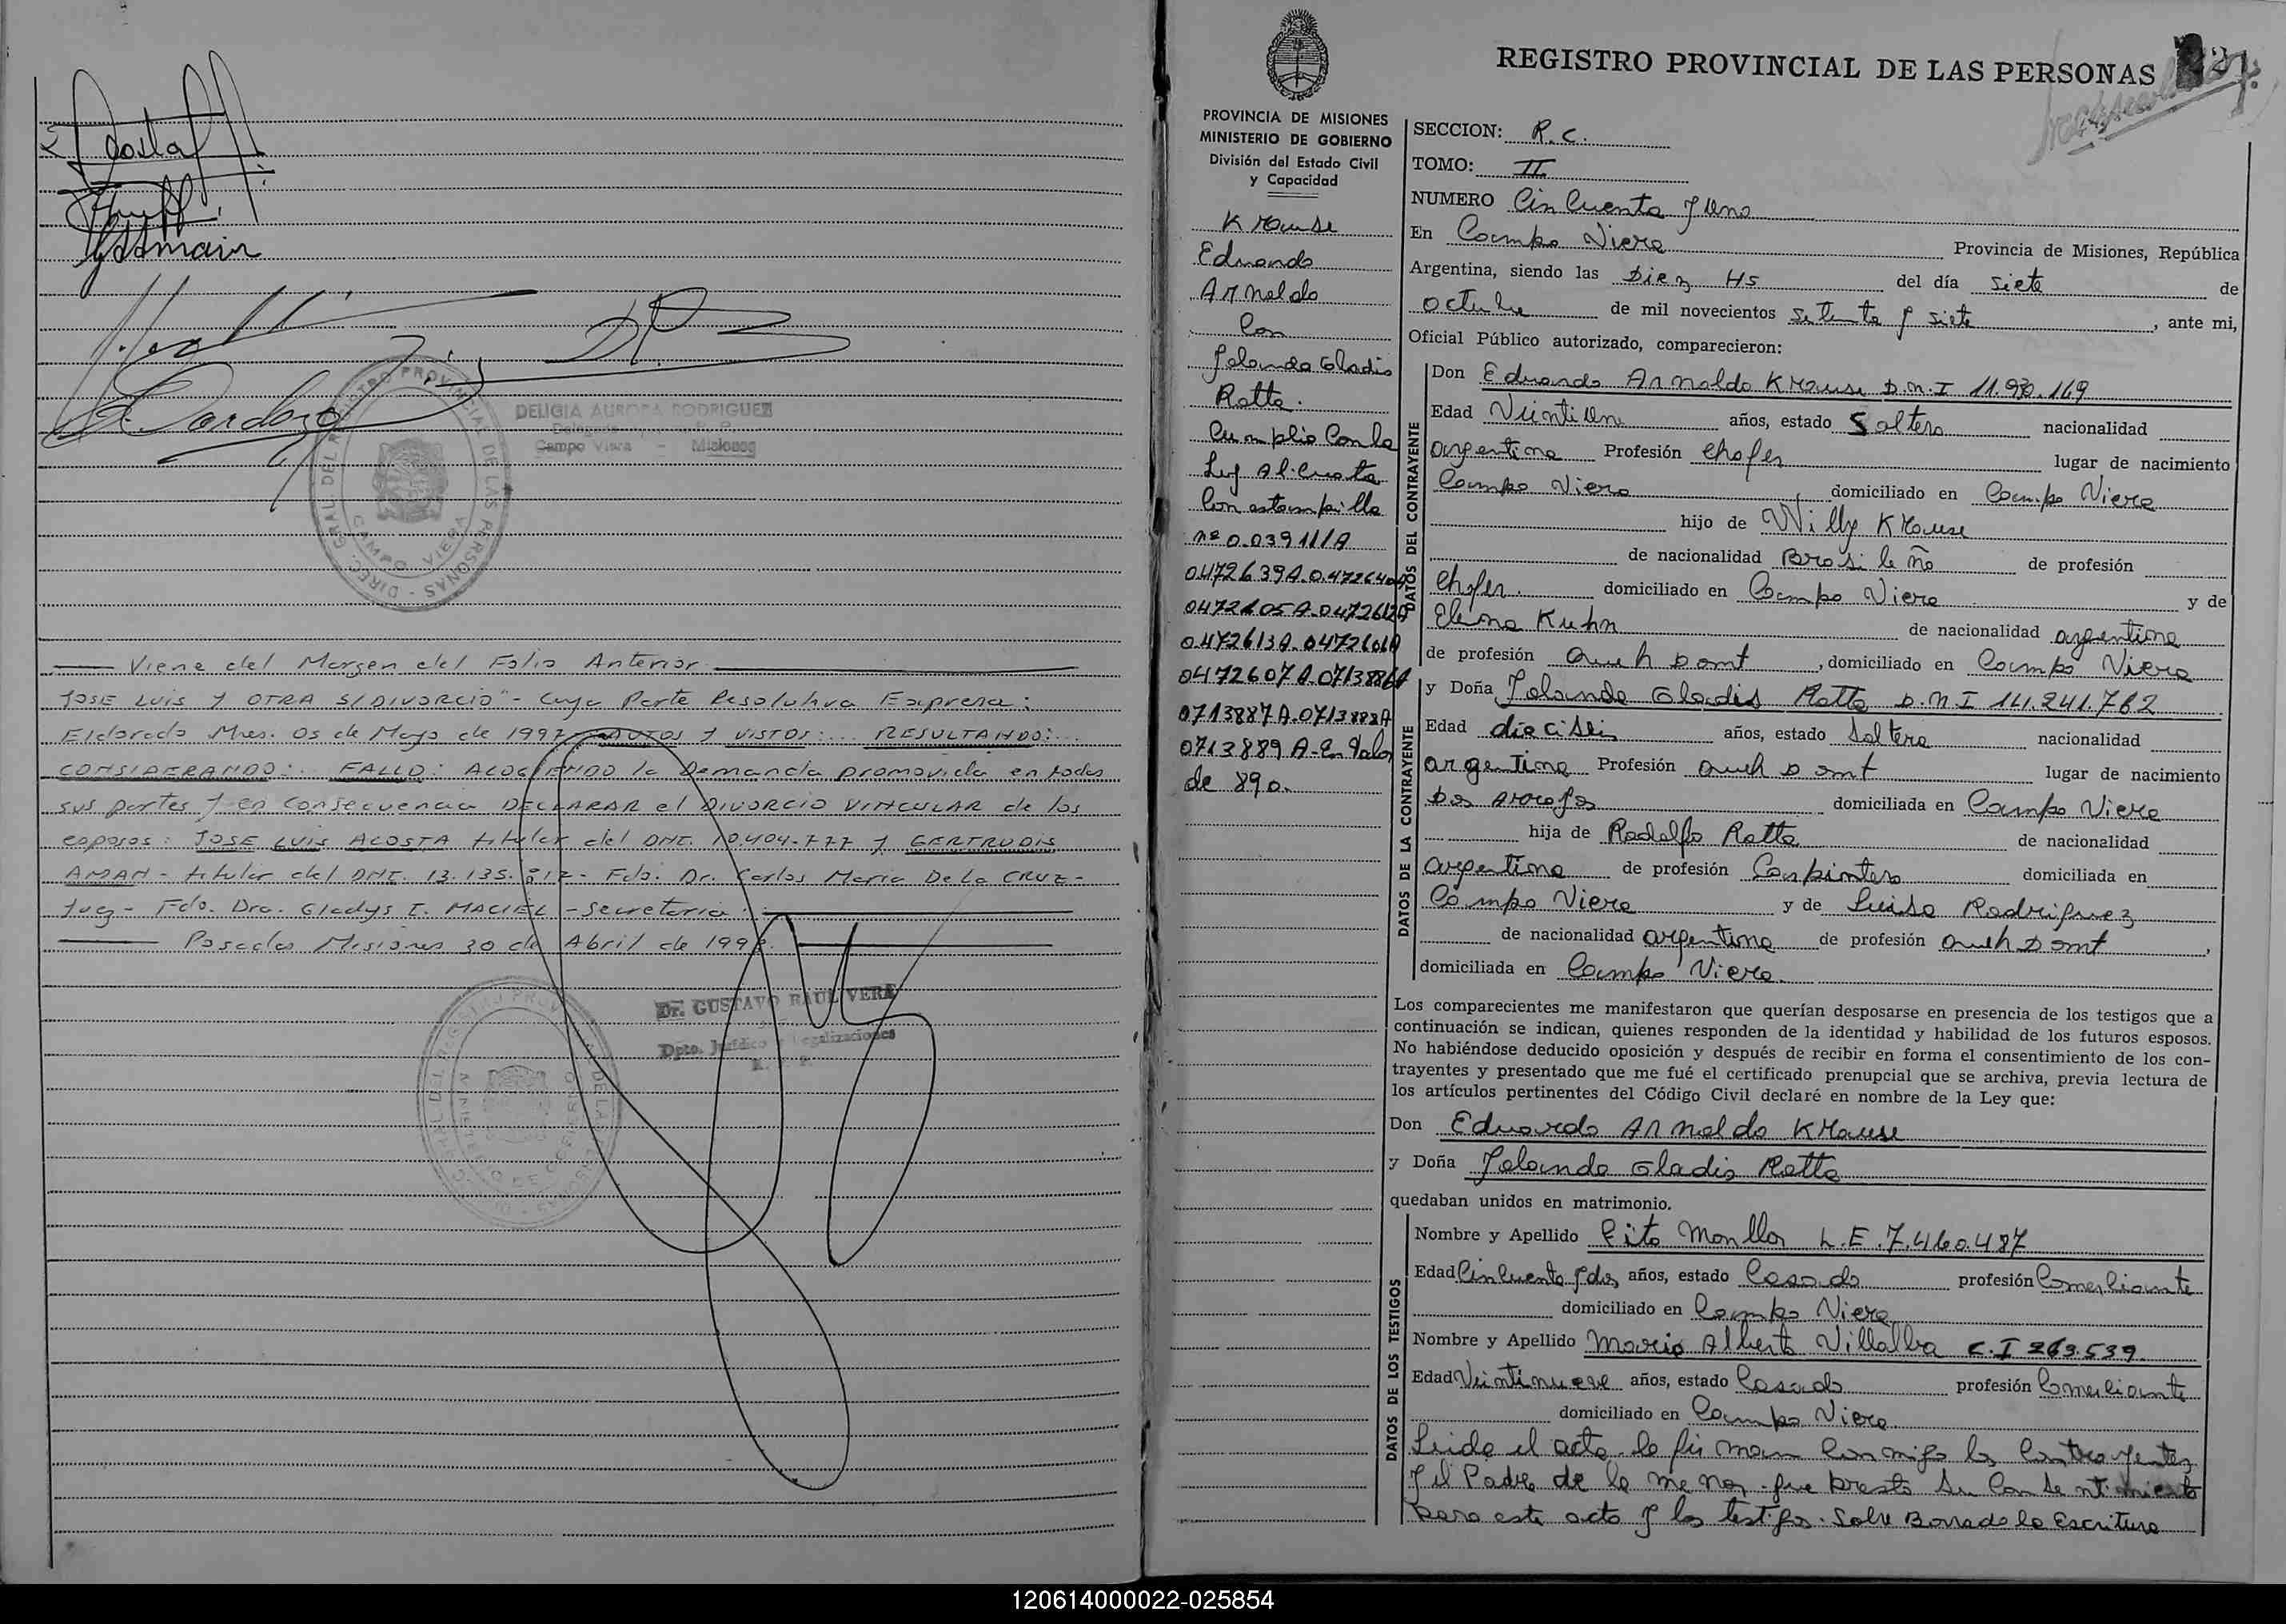 Acosta
Gassmann
Cardozo
DIREC. GRAL. DEL REGISTRO PROVINCIAL DE LAS PERSONAS
CAMPO VIERA
DELIGIA AURORA RODRIGUEZ
Campo Viera - Misiones
Viene del Margen del Folio Anterior
JOSE LUIS Y OTRA S/DIVORCIO" - Cuya Parte Resolutiva Expresa:
Eldorado Mnes. 05 de Mayo de 1997 AUTOS Y VISTOS: ... RESULTANDO: ...
CONSIDERANDO: .. FALLO: ACOGIENDO la Demanda promovida en todas
sus partes y en consecuencia DECLARAR el DIVORCIO VINCULAR de los
esposos: JOSE LUIS ACOSTA titular del DNI. 10.404.777 y GERTRUDIS
- titular del DNI. 13.135.812 - Fdo. Dr. Carlos Maria De La CRUZ -
Juez - Fdo. Dra. Gladys I. MACIEL - Secretaria
Posadas Misiones 30 de Abril de 199
Dr. GUSTAVO RAUL VERA
Dpto. Jurídico y Legalizaciones
R. P. P.
REGISTRO PROVINCIAL DE LAS PERSONAS
PROVINCIA DE MISIONES
MINISTERIO DE GOBIERNO
División del Estado Civil
y Capacidad
Krause
Eduardo
Arnoldo
Con
Yolanda Gladis
Rotta.
Cumplio Con la
Ley Al. Cuota
Con estampilla
nº 0.03911/A
0472639A.047264
0472605A.0472612A
0.472613A.0472606A
0472607A.0713886A
0713887A.0713888A
0713889A-En Valor
de 890.
SECCION: R.C.
TOMO: II
NUMERO Cincuenta y Uno
En Campo Viera Provincia de Misiones, República
Argentina, siendo las Diez Hs del día siete de
octubre de mil novecientos setenta y siete , ante mi,
Oficial Público autorizado, comparecieron:
DATOS DEL CONTRAYENTE
Don Eduardo Arnoldo Krause D.N.I 11.970.169
Edad Veintiun años, estado Soltero nacionalidad
argentina Profesión Chofer lugar de nacimiento
Campo Viera , domiciliado en Campo Viera
hijo de Willy Krause
de nacionalidad Brasileño de profesión
Chofer. domiciliado en Campo Viera y de
Elena Kuhn de nacionalidad argentina
de profesión queh Domt , domiciliado en Campo Viera
DATOS DE LA CONTRAYENTE
y Doña Yolanda Gladis Rotta D.N.I 14.241.762
Edad dieciseis años, estado Soltera nacionalidad
argentina Profesión queh Domt lugar de nacimiento
Dos Arroyos domiciliada en Campo Viera
hija de Rodolfo Rotta de nacionalidad
argentina de profesión Carpintero domiciliada en
Campo Viera y de Luisa Rodriguez
de nacionalidad argentina de profesión queh Domt ,
domiciliada en Campo Viera.
Los comparecientes me manifestaron que querían desposarse en presencia de los testigos que a
continuación se indican, quienes responden de la identidad y habilidad de los futuros esposos.
No habiéndose deducido oposición y después de recibir en forma el consentimiento de los con-
trayentes y presentado que me fué el certificado prenupcial que se archiva, previa lectura de
los artículos pertinentes del Código Civil declaré en nombre de la Ley que:
Don Eduardo Arnoldo Krause
y Doña Yolanda Gladis Rotta
quedaban unidos en matrimonio.
DATOS DE LOS TESTIGOS
Nombre y Apellido Tito Monllor L.E.7.460.487
Edad Cincuenta y dos años, estado Casado profesión Comerciante
domiciliado en Campo Viera
Nombre y Apellido Mario Alberto Villalba C.I 263.539.
Edad Veintinueve años, estado Casado profesión Comerciante
domiciliado en Campo Viera
Leida el acta la firman conmigo los contrayentes
y el Padre de la menor que presta su consentimiento
para este acto y los testigos. Sobre Borrado la Escritura
120614000022-025854